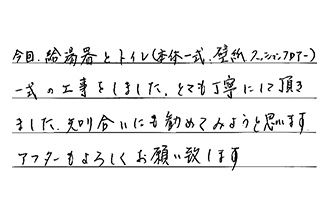 今回、給湯器とトイレ(本体一式、壁紙、クッションフロアー)
一式の工事をしました。とても丁寧にして頂き
ました。知り合いにも勧めてみようと思います
アフターもよろしくお願い致します